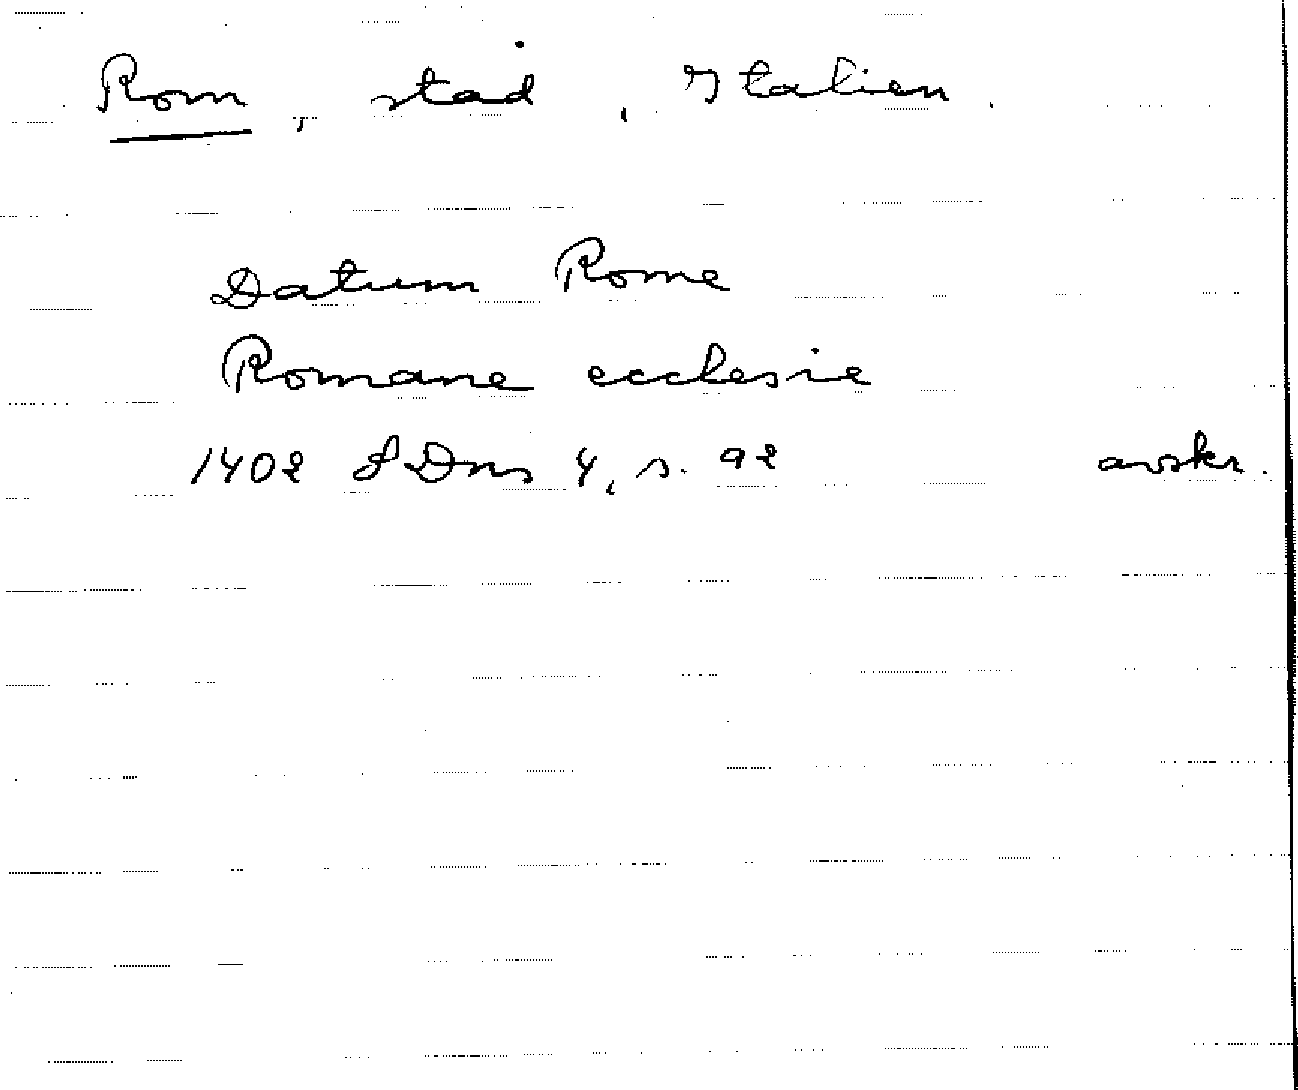 Rom, stad, Italien.
Datum Rome
Romane ecclesie
1402 SDns 4, s. 92 avskr.